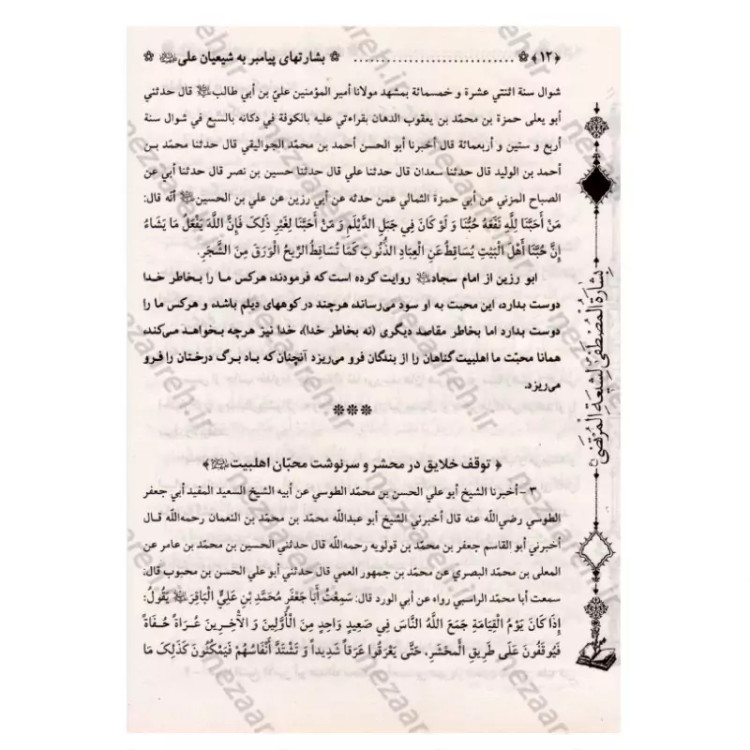 ﴿۱۲﴾ ❁ .......................... ❁ بشارتهای پیامبر به شیعیان علی ❁
شوال سنة اثنتي عشرة و خمسمائة بمشهد مولانا أمير المؤمنين عليّ بن أبي طالب قال حدثني
أبو يعلى حمزة بن محمّد بن يعقوب الدهان بقراءتي عليه بالكوفة في دكانه بالسبع في شوال سنة
أربع و ستين و أربعمائة قال أخبرنا أبو الحسن أحمد بن محمّد الجواليقي قال حدثنا محمّد بن
أحمد بن الوليد قال حدثنا سعدان قال حدثنا علي قال حدثنا حسين بن نصر قال حدثنا أبي عن
الصباح المزني عن أبي حمزة الثمالي عمن حدثه عن أبي رزين عن علي بن الحسين أنّه قال:
مَنْ أَحَبَّنَا لِلَّهِ نَفَعَهُ حُبُّنَا وَ لَوْ كَانَ فِي جَبَلِ الدَّيْلَمِ وَ مَنْ أَحَبَّنَا لِغَيْرِ ذَلِكَ فَإِنَّ اللَّهَ يَفْعَلُ مَا يَشَاءُ
إِنَّ حُبَّنَا أَهْلَ الْبَيْتِ يُسَاقِطُ عَنِ الْعِبَادِ الذُّنُوبَ كَمَا تُسَاقِطُ الرِّيحُ الْوَرَقَ مِنَ الشَّجَرِ.
ابو رزین از امام سجاد روایت کرده است که فرمودند: هرکس ما را بخاطر خدا
دوست بدارد، این محبت به او سود می‌رساند، هرچند در کوههای دیلم باشد، و هرکس ما را
دوست بدارد اما بخاطر مقاصد دیگری (نه بخاطر خدا)، خدا نیز هرچه بخواهد می‌کند،
همانا محبّت ما اهلبیت گناهان را از بندگان فرو می‌ریزد آنچنان که باد برگ درختان را فرو
می‌ریزد.
❁❁❁
﴿ توقف خلایق در محشر و سرنوشت محبّان اهلبیت ﴾
۳ - أخبرنا الشيخ أبو علي الحسن بن محمّد الطوسي عن أبيه الشيخ السعيد المفيد أبي جعفر
الطوسي رضي‌اللّه عنه قال أخبرني الشيخ أبو عبداللّه محمّد بن محمّد بن النعمان رحمه‌اللّه قال
أخبرني أبو القاسم جعفر بن محمّد بن قولويه رحمه‌اللّه قال حدثني الحسين بن محمّد بن عامر عن
المعلى بن محمّد البصري عن محمّد بن جمهور العمي قال حدثني أبو علي الحسن بن محبوب قال:
سمعت أبا محمّد الراسبي رواه عن أبي الورد قال: سَمِعْتُ أَبَا جَعْفَرٍ مُحَمَّدَ بْنَ عَلِيٍّ الْبَاقِرَ يَقُولُ:
إِذَا كَانَ يَوْمُ الْقِيَامَةِ جَمَعَ اللَّهُ النَّاسَ فِي صَعِيدٍ وَاحِدٍ مِنَ الْأَوَّلِينَ وَ الْآخِرِينَ عُرَاةً حُفَاةً
فَيُوقَفُونَ عَلَى طَرِيقِ الْمَحْشَرِ، حَتَّى يَعْرَقُوا عَرَقاً شَدِيداً وَ تَشْتَدَّ أَنْفَاسُهُمْ فَيَمْكُثُونَ كَذَلِكَ مَا
بشارة المصطفى لشيعة المرتضى
nezaareh.ir